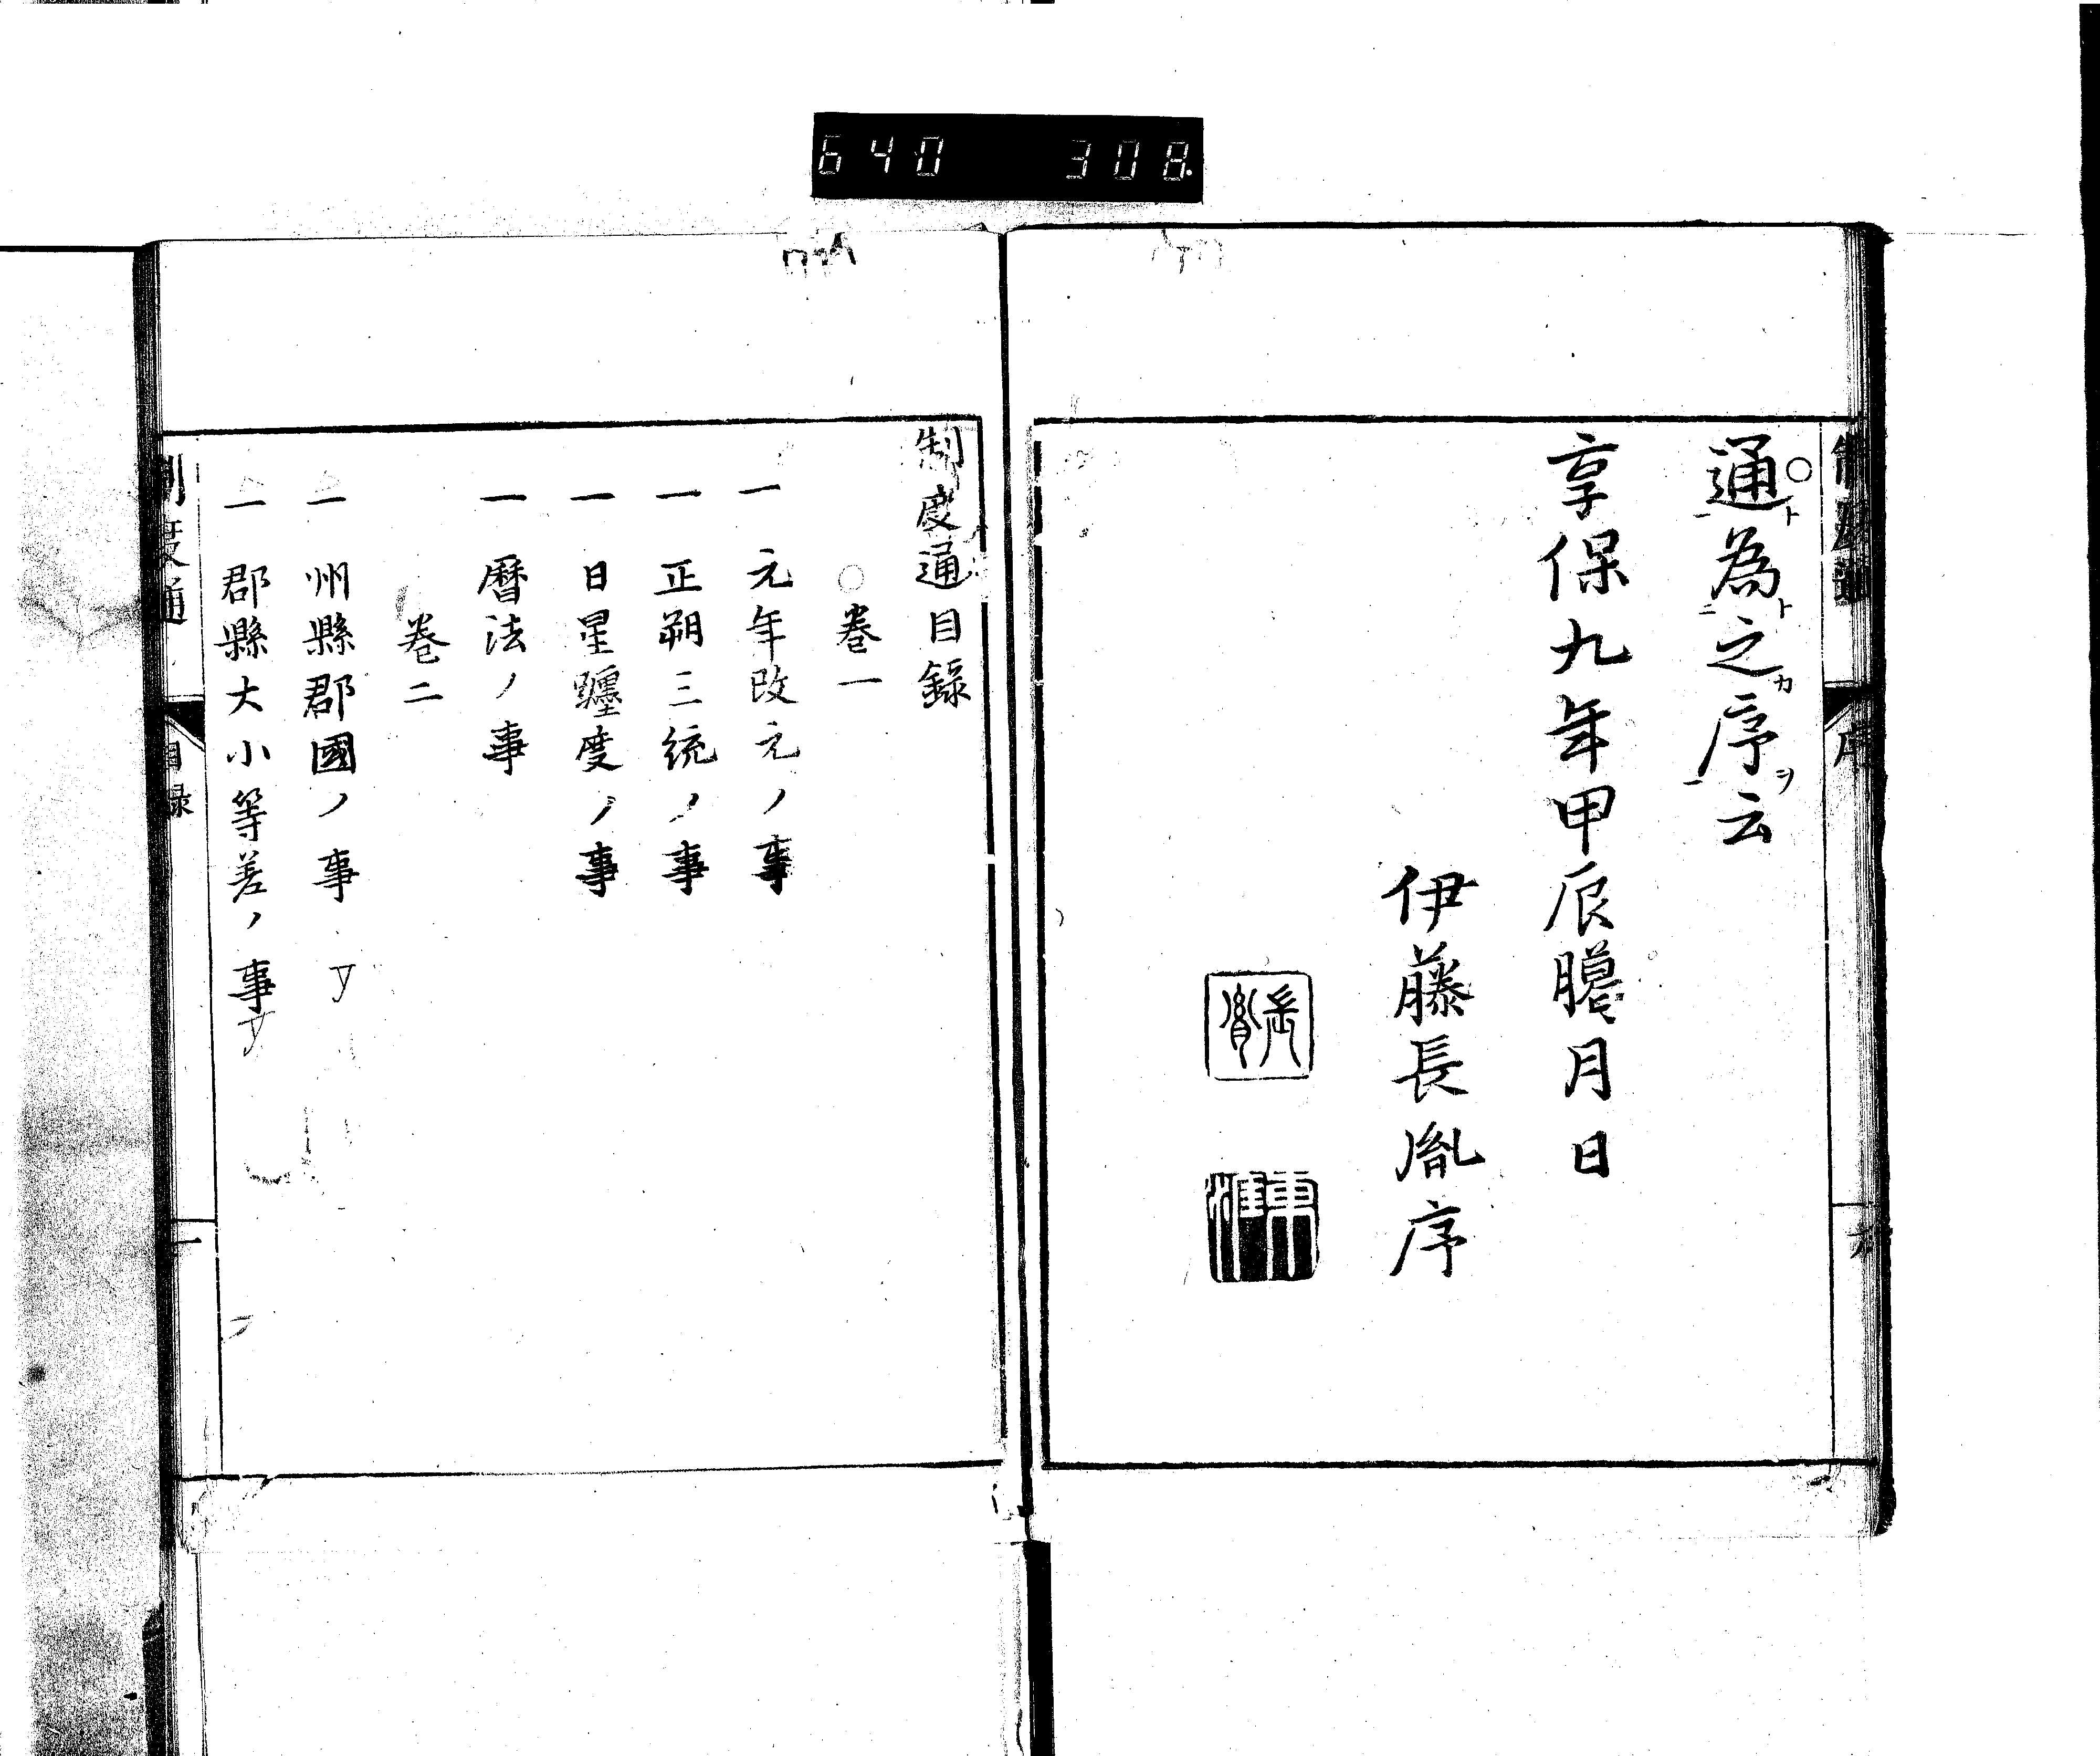 640 308.
制度通 序 六
通ト一為ト二之カ序ヲ一云
享保九年甲辰臘月日
伊藤長胤序
長胤
東涯
制度通目録
○巻一
一 元年改元ノ事
一 正朔三統ノ事
一 日星躔度ノ事
一 暦法ノ事
巻二
一 州縣郡國ノ事
一 郡縣大小等差ノ事
制度通 目録 一